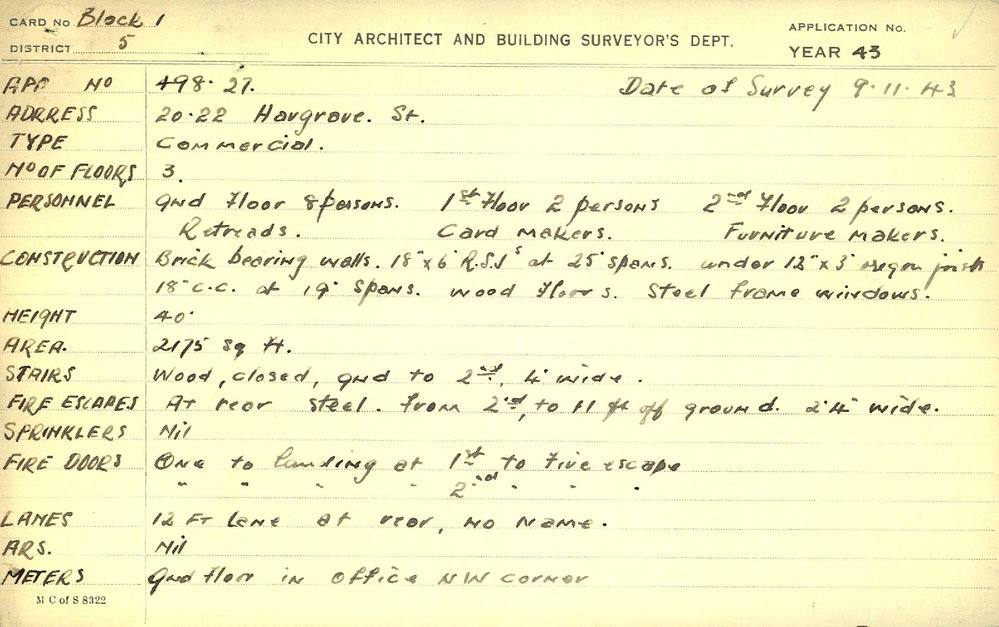 CARD No Block 1
DISTRICT 5
CITY ARCHITECT AND BUILDING SURVEYOR'S DEPT.
APPLICATION No.
YEAR 43
APP No 498·27. Date of Survey 9·11·43
ADRRESS 20·22 Hargrave. St.
TYPE Commercial.
No OF FLOORS 3.
PERSONNEL Gnd Floor 8 persons. 1st Floor 2 persons 2nd Floor 2 persons.
Retreads. Card makers. Furniture makers.
CONSTRUCTION Brick bearing walls. 18"x6" R.S.J's at 25' spans. under 12"x3" oregon joists
18" C.C. at 19' spans. wood floors. Steel frame windows.
HEIGHT 40'
AREA. 2175 sq ft.
STAIRS Wood, closed, gnd to 2nd, 4' wide.
FIRE ESCAPES At rear steel. from 2nd, to 11 ft off ground. 2'4" wide.
SPRINKLERS Nil
FIRE DOORS One to landing at 1st to Fire escape
" " " " 2nd " " "
LANES 12 Ft lane at rear, no name.
ARS. Nil
METERS Gnd floor in office NW corner
M C of S 8322